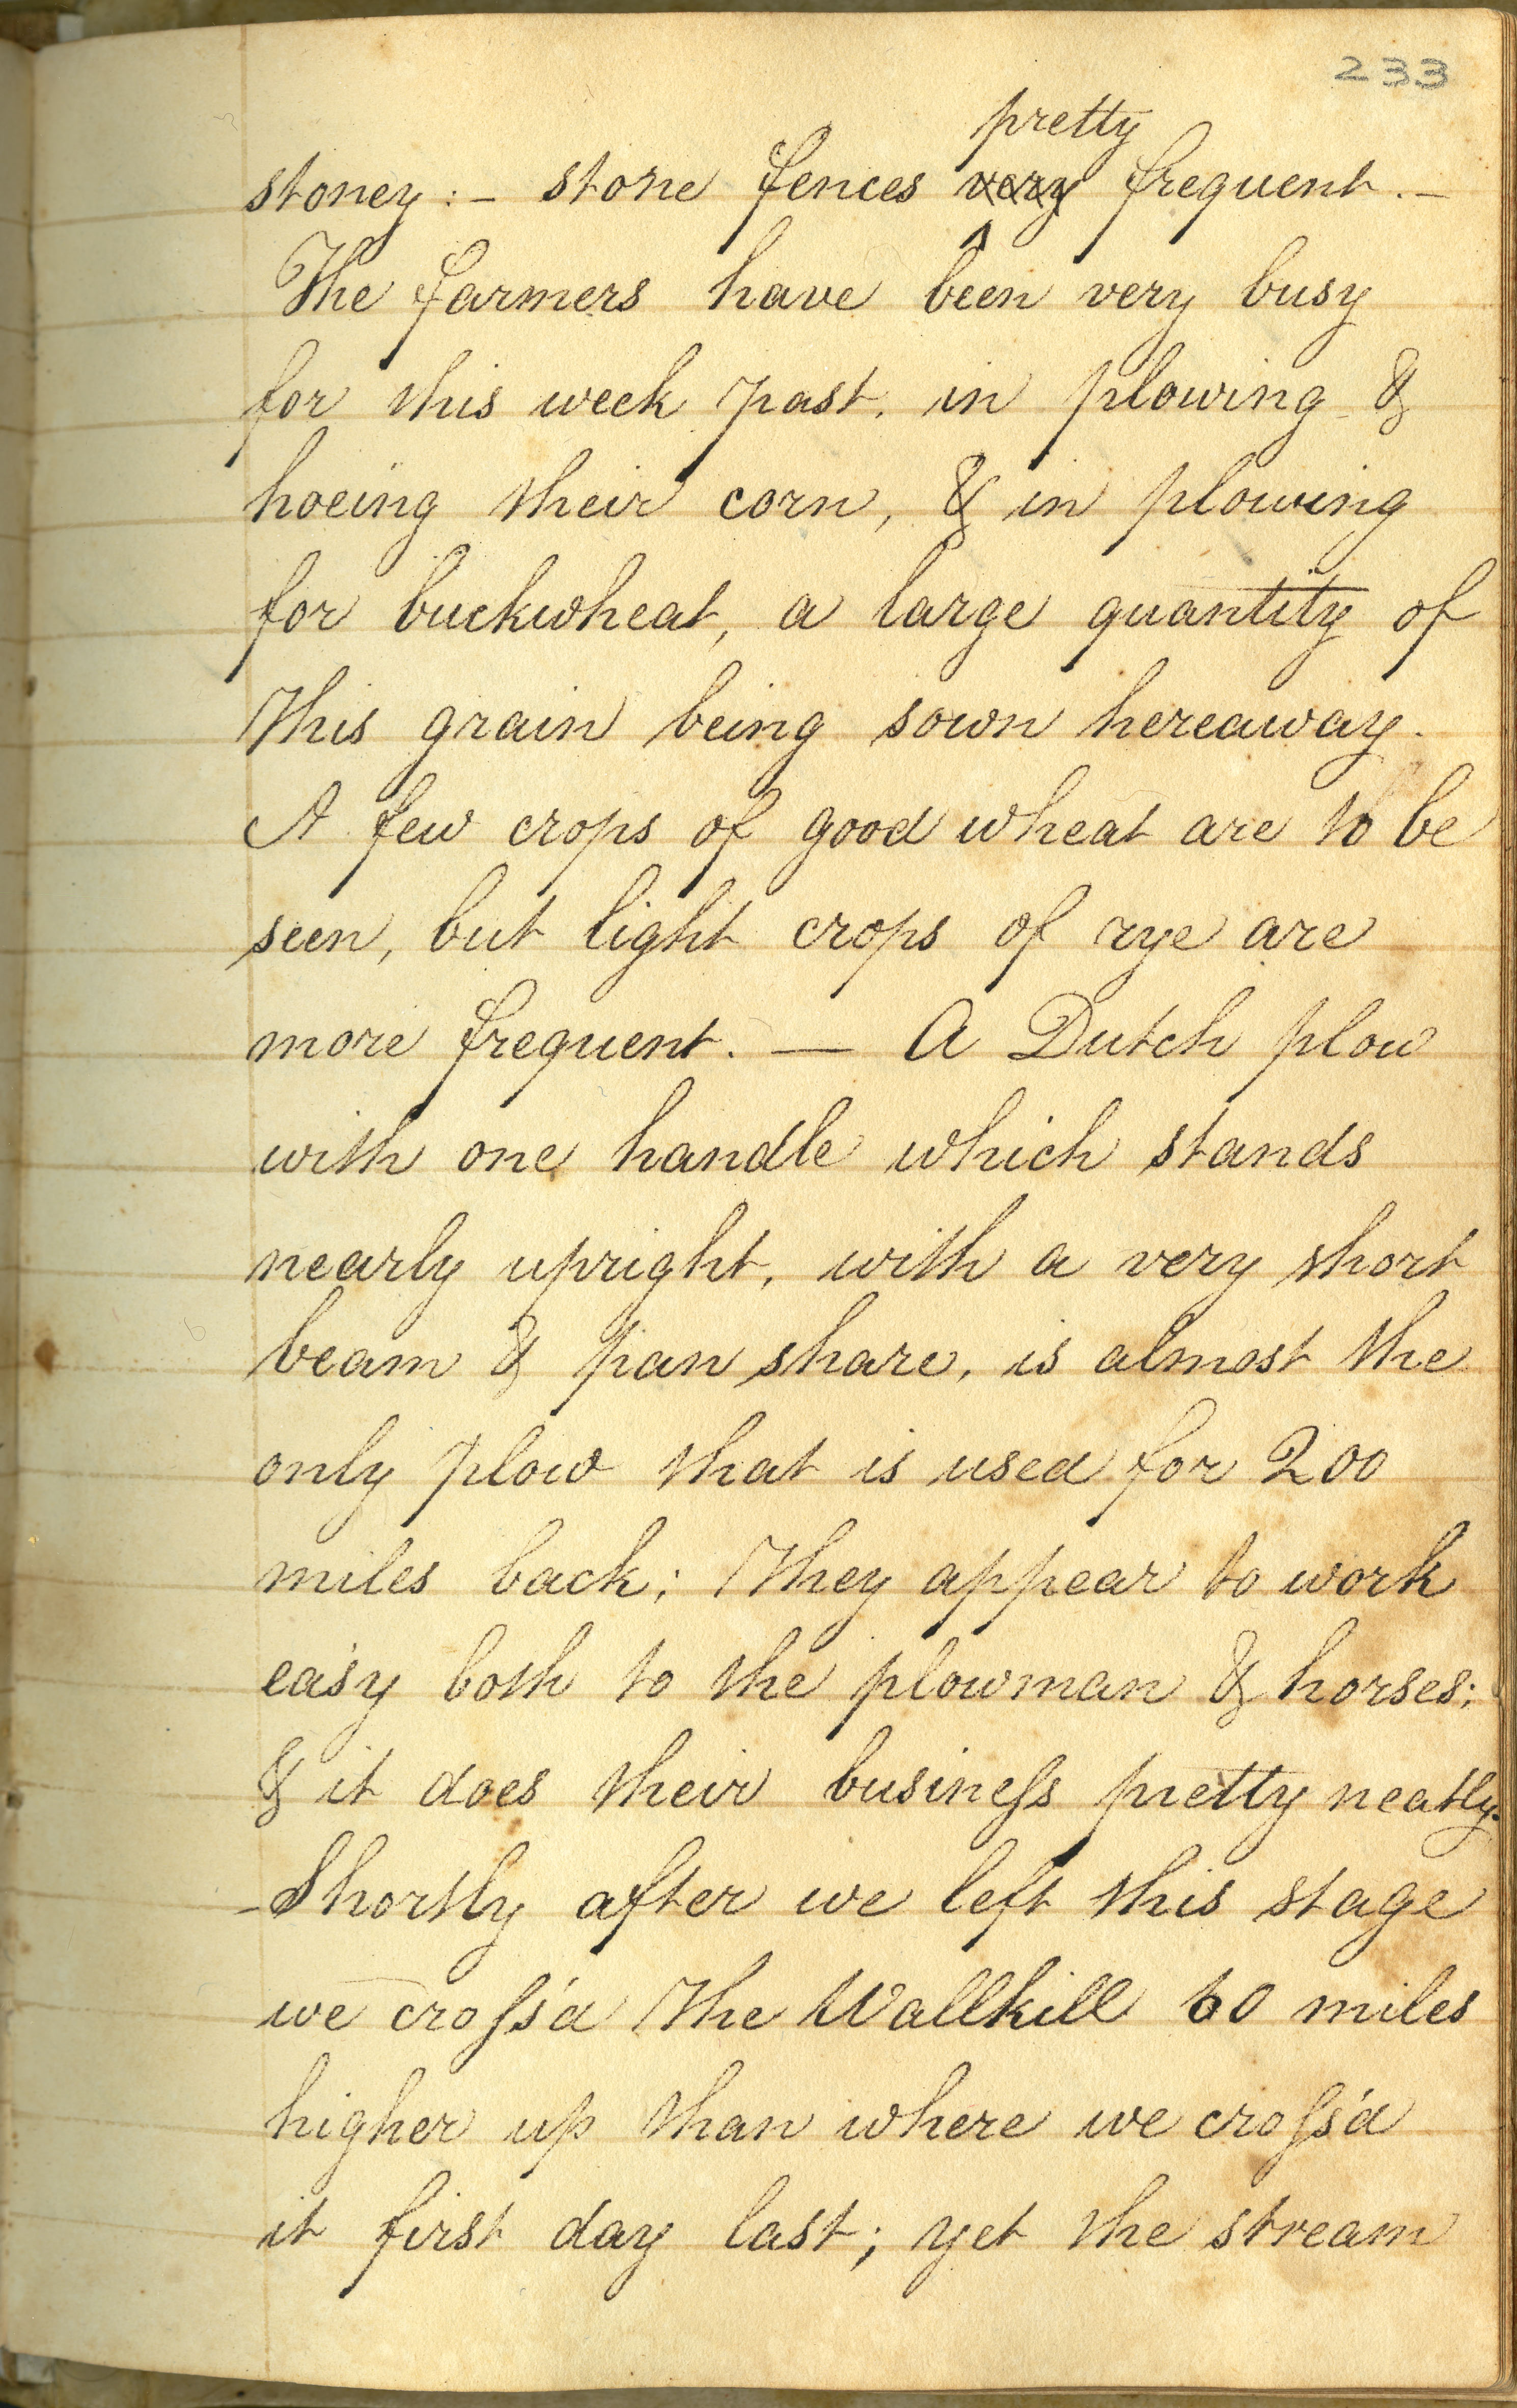 233
pretty
stoney :- stone fences very frequent. -
The farmers have been very busy
for this week past, in plowing &
hoeing their corn, & in plowing
for buckwheat, a large quantity of
this grain being sown hereaway.
A few crops of good wheat are to be
seen, but light crops of rye are
more frequent. — A Dutch plow
with one handle which stands
nearly upright, with a very short
beam & pan share, is almost the
only plow that is used for 200
miles back; They appear to work
easy both to the plowman & horses;
& it does their busineſs pretty neatly.
- Shortly after we left this stage
we croſs'd the Wallkill 60 miles
higher up than where we croſs'd
it first day last; yet the stream